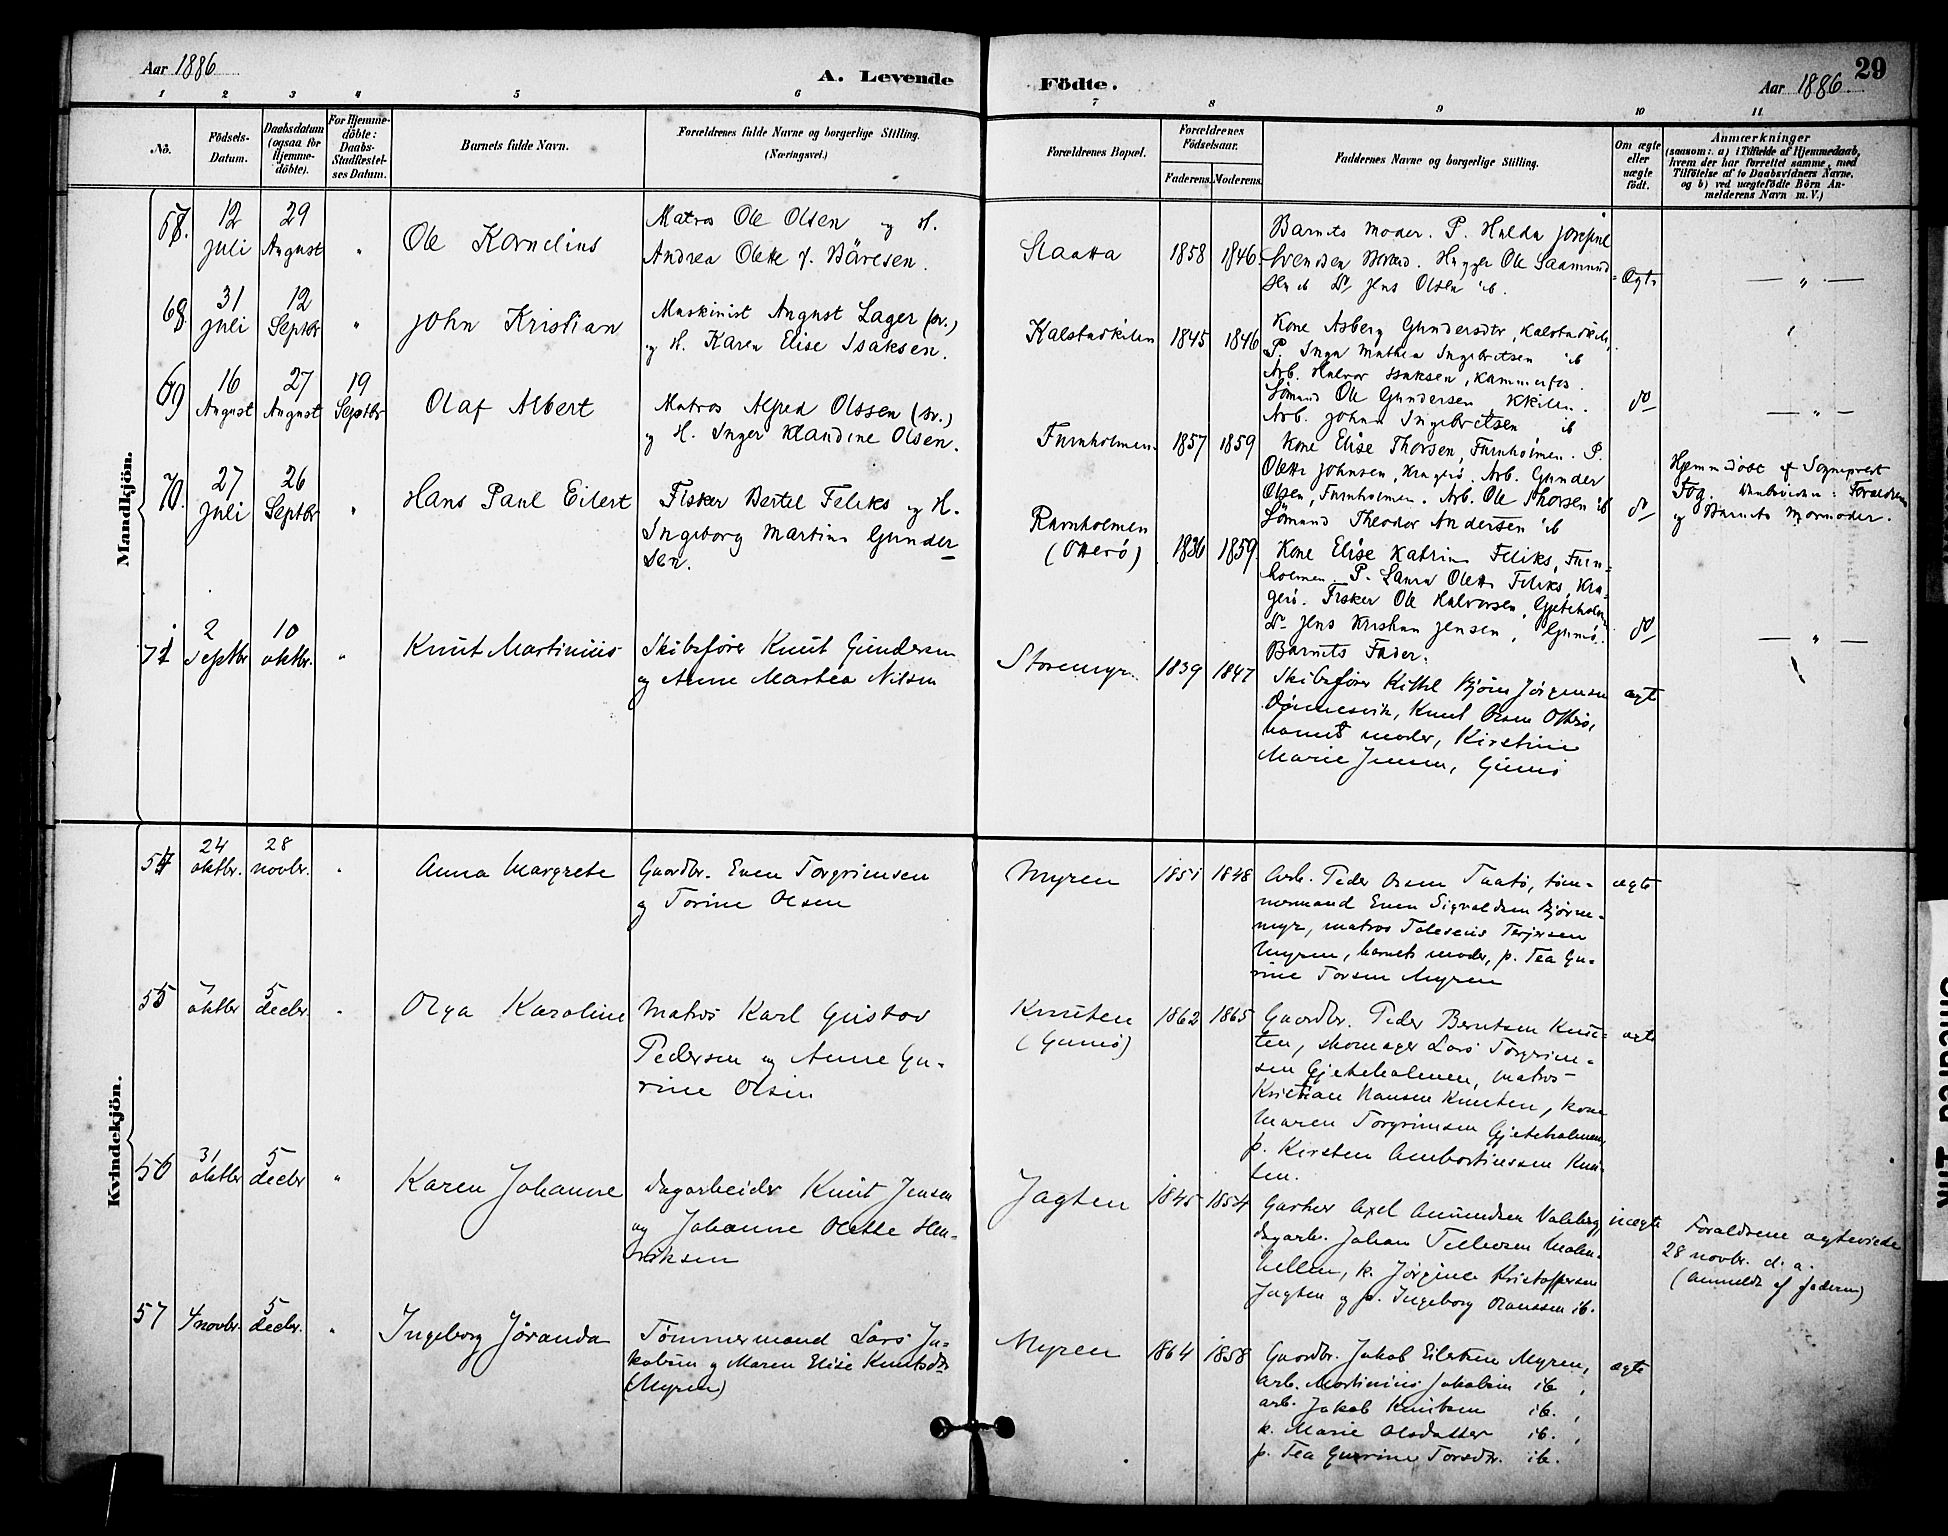 Aar 1886
A. Levende
Födte.
Aar 1886
29
1 2 3 4 5 6 7 8 9 10 11
No.
Födsels-Datum.
Daabsdatum (ogsaa for Hjemme-döbte).
For Hjemme-döbte: Daabs-Stadfæstel-ses Datum.
Barnets fulde Navn.
Forældrenes fulde Navne og borgerlige Stilling. (Næringsvei.)
Forældrenes Bopæl.
Forældrenes Födselsaar.
Faderens. Moderens.
Faddernes Navne og borgerlige Stilling.
Om ægte eller uægte födt.
Anmærkninger
(saasom: a) i Tilfælde af Hjemmedaab,
hvem der har forrettet samme, med
Tilföielse af to Daabsvidners Navne,
og b) ved uægtefödte Börn An-
melderens Navn m. V.)
Mandkjön.
12 juli
29 August
"
Ole Kornelius
Matros Ole Olsen og H.
Andrea Olette f. Båresen.
Staatta
1858 1846
Barnets Moder. P. Hulda
Svendsen
Jens Olsen ib.
Ægte
— " —
68
31 juli
12 Septbr
"
John Kristian
Maskinist August Lager (sv.)
og H. Karen Elise Isaksen.
Kalstadkilen
1845 1846
Kone Asberg Gundersdtr, Kalstadkile,
P. Inga Mathea Ingebretsen ib
Arb. Halvor Isaksen, Kammerfos.
Sömand Ole Gundersen Kkilen.
Arb. Johan Ingebretsen ib
do
— " —
69
16 August
27 August
19 Septbr
Olaf Albert
Matros Alfred Olssen (sv.)
og H. Inger Klandine Olsen.
Furuholmen
1857 1859
Kone Elise Thorsen, Furuholmen. P.
Olette Johnsen, Kragerö. Arb. Gunder
Olsen, Furuholmen. Arb. Ole Thorsen ib
Sömand Theodor Andersen ib
do
Hjemmedöbt af Sogneprest
Fog. : Forældrene
og Barnets Mormoder.
70.
27 juli
26 Septbr
"
Hans Paul Eilert
Fisker Bertel Feliks og H.
Ingeborg Martine Gunder
sen.
Rurholmen
(Otterö)
1836 1859
Kone Elise Katrine Feliks, Furu-
holmen. P. Laura Olette Feliks, Kra-
gerö. Fisker Ole Halvorsen, Gjeteholm
Do Jens Kristian Jensen, Gumö.
Barnets Fader.
do
— " —
71
2 septbr
10 oktbr.
"
Knut Martinius
Skibsfører Knut Gundersen
og Anne Marthea Nilsen
Storemyr
1839 1847
Skibsfører Kittil Bjørn Jörgensen
Dønnesvik, Knut Olsen Otterö,
barnets moder, Kirstine
Marie Jensen, Gumö
ægte
Kvindekjön.
54
24 oktbr.
28 novbr.
"
Anna Margrete
Gaardbr. Even Torgrimsen
og Torine Olsen
Myren
1851 1848
Arb. Peder Olsen Taatö, töm-
mermand Even Sigvaldsen Bjørne-
myr, matros Tolesius Terjesen
Myren, barnets moder, p. Tea Gu-
rine Torsen Myren
ægte
55
7 oktbr
5 decbr.
"
Olga Karoline
Matros Karl Gustav
Pedersen og Anne Gu-
rine Olsen
Knuten
(Gumö)
1862 1865
Gaardbr. Peder Berntsen Knu-
ten, skomager Lars Torgrim-
sen Gjeteholmen, matros
Kristian Hansen Knuten, kone
Maren Torgrimsen Gjeteholmen,
p. Kirsten Ambortinssen Knu-
ten.
ægte
56
31 oktbr
5 decbr
"
Karen Johanne
dagarbeider Knut Jensen
og Johanne Olette Hen-
riksen
Jagten
1845 1854
Garver Axel Amundsen Valeberg
dagarb. Johan Tellefsen
hellen, k. Jørgine Kristoffersen
Jagten og p. Ingeborg Hanssen ib.
uægte
Forældrene ægteviede
28 novbr. d. a.
(Anmeldt af faderen)
57
4 novbr.
5 decbr.
"
Ingeborg Jöranda
Tømmermand Lars Ja-
kobsen og Maren Elise Knutsdtr
(Myren)
Myren
1864 1858
Gaardbr. Jakob Eilertsen Myren,
arb. Martinius Jakobsen ib ,
arb. Jakob Knutsen ib. ,
k. Marie Olsdatter ib. ,
p. Tea Gurine Torsdtr. ib.
ægte